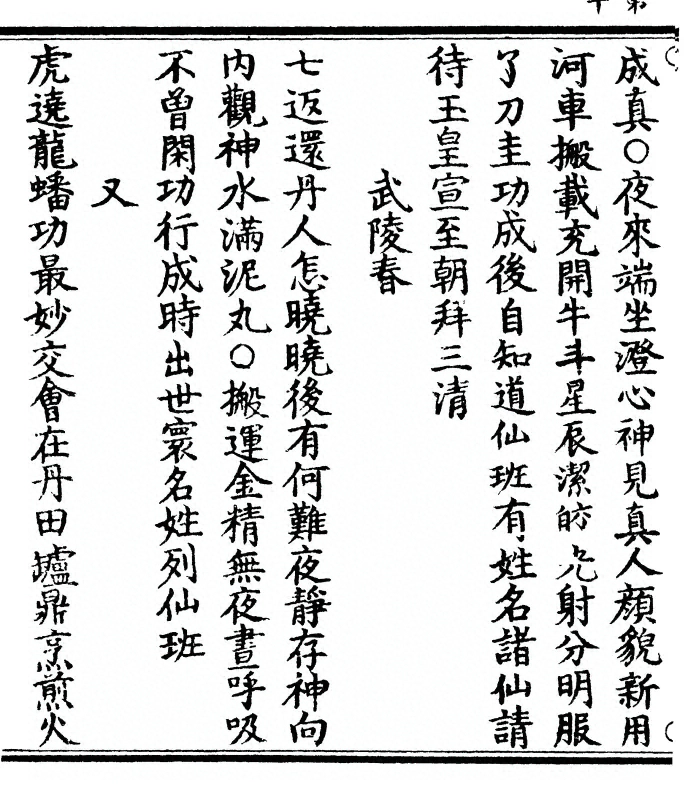 成真○夜來端坐澄心神見真人顏貌新用
河車搬載充開牛斗星辰潔皎光射分明服
了刀圭功成後自知道仙班有姓名諸仙請
待玉皇宣至朝拜三清
武陵春
七返還丹人怎曉曉後有何難夜靜存神向
內觀神水滿泥丸○搬運金精無夜晝呼吸
不曾閑功行成時出世寰名姓列仙班
又
虎遶龍蟠功最妙交會在丹田鑪鼎烹煎火